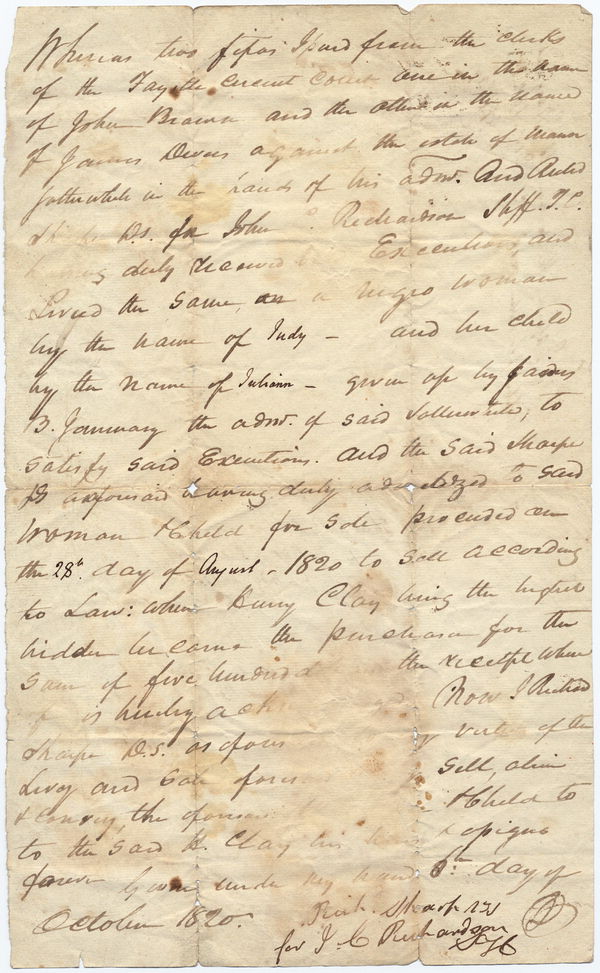 Whereas two fifas Issued from the clerks
of the Fayette circuit Court one in the name
of John Brown and the other in the name
of James Devers against the estate of
in the hands of his admr. And
D.s. for John Richardson Shff. F.C.
duly received Executions, and
Levied the same, on a Negro woman
by the name of Judy - and her child
by the name of Juliann - given up by James
B. January the admr. of said to
satisfy said Executions. and the said Sharpe
DS aforesaid having duly advertized said
woman & Child for sale proceeded on
the 28th. day of August - 1820 to sell according
to Law: when Henry Clay being the highest
bidder became the purchaser for the
sum of five hundred the receipt where
of is hereby Now I Richd
Sharpe D.s. as afores virtue of the
Levy and sale sell, alien
& convey, the & Child to
to the said H. Clay his heirs & assigns
forever Given under my hand day of
October 1820.
Rich. Sharp DS
for J. C Richardson